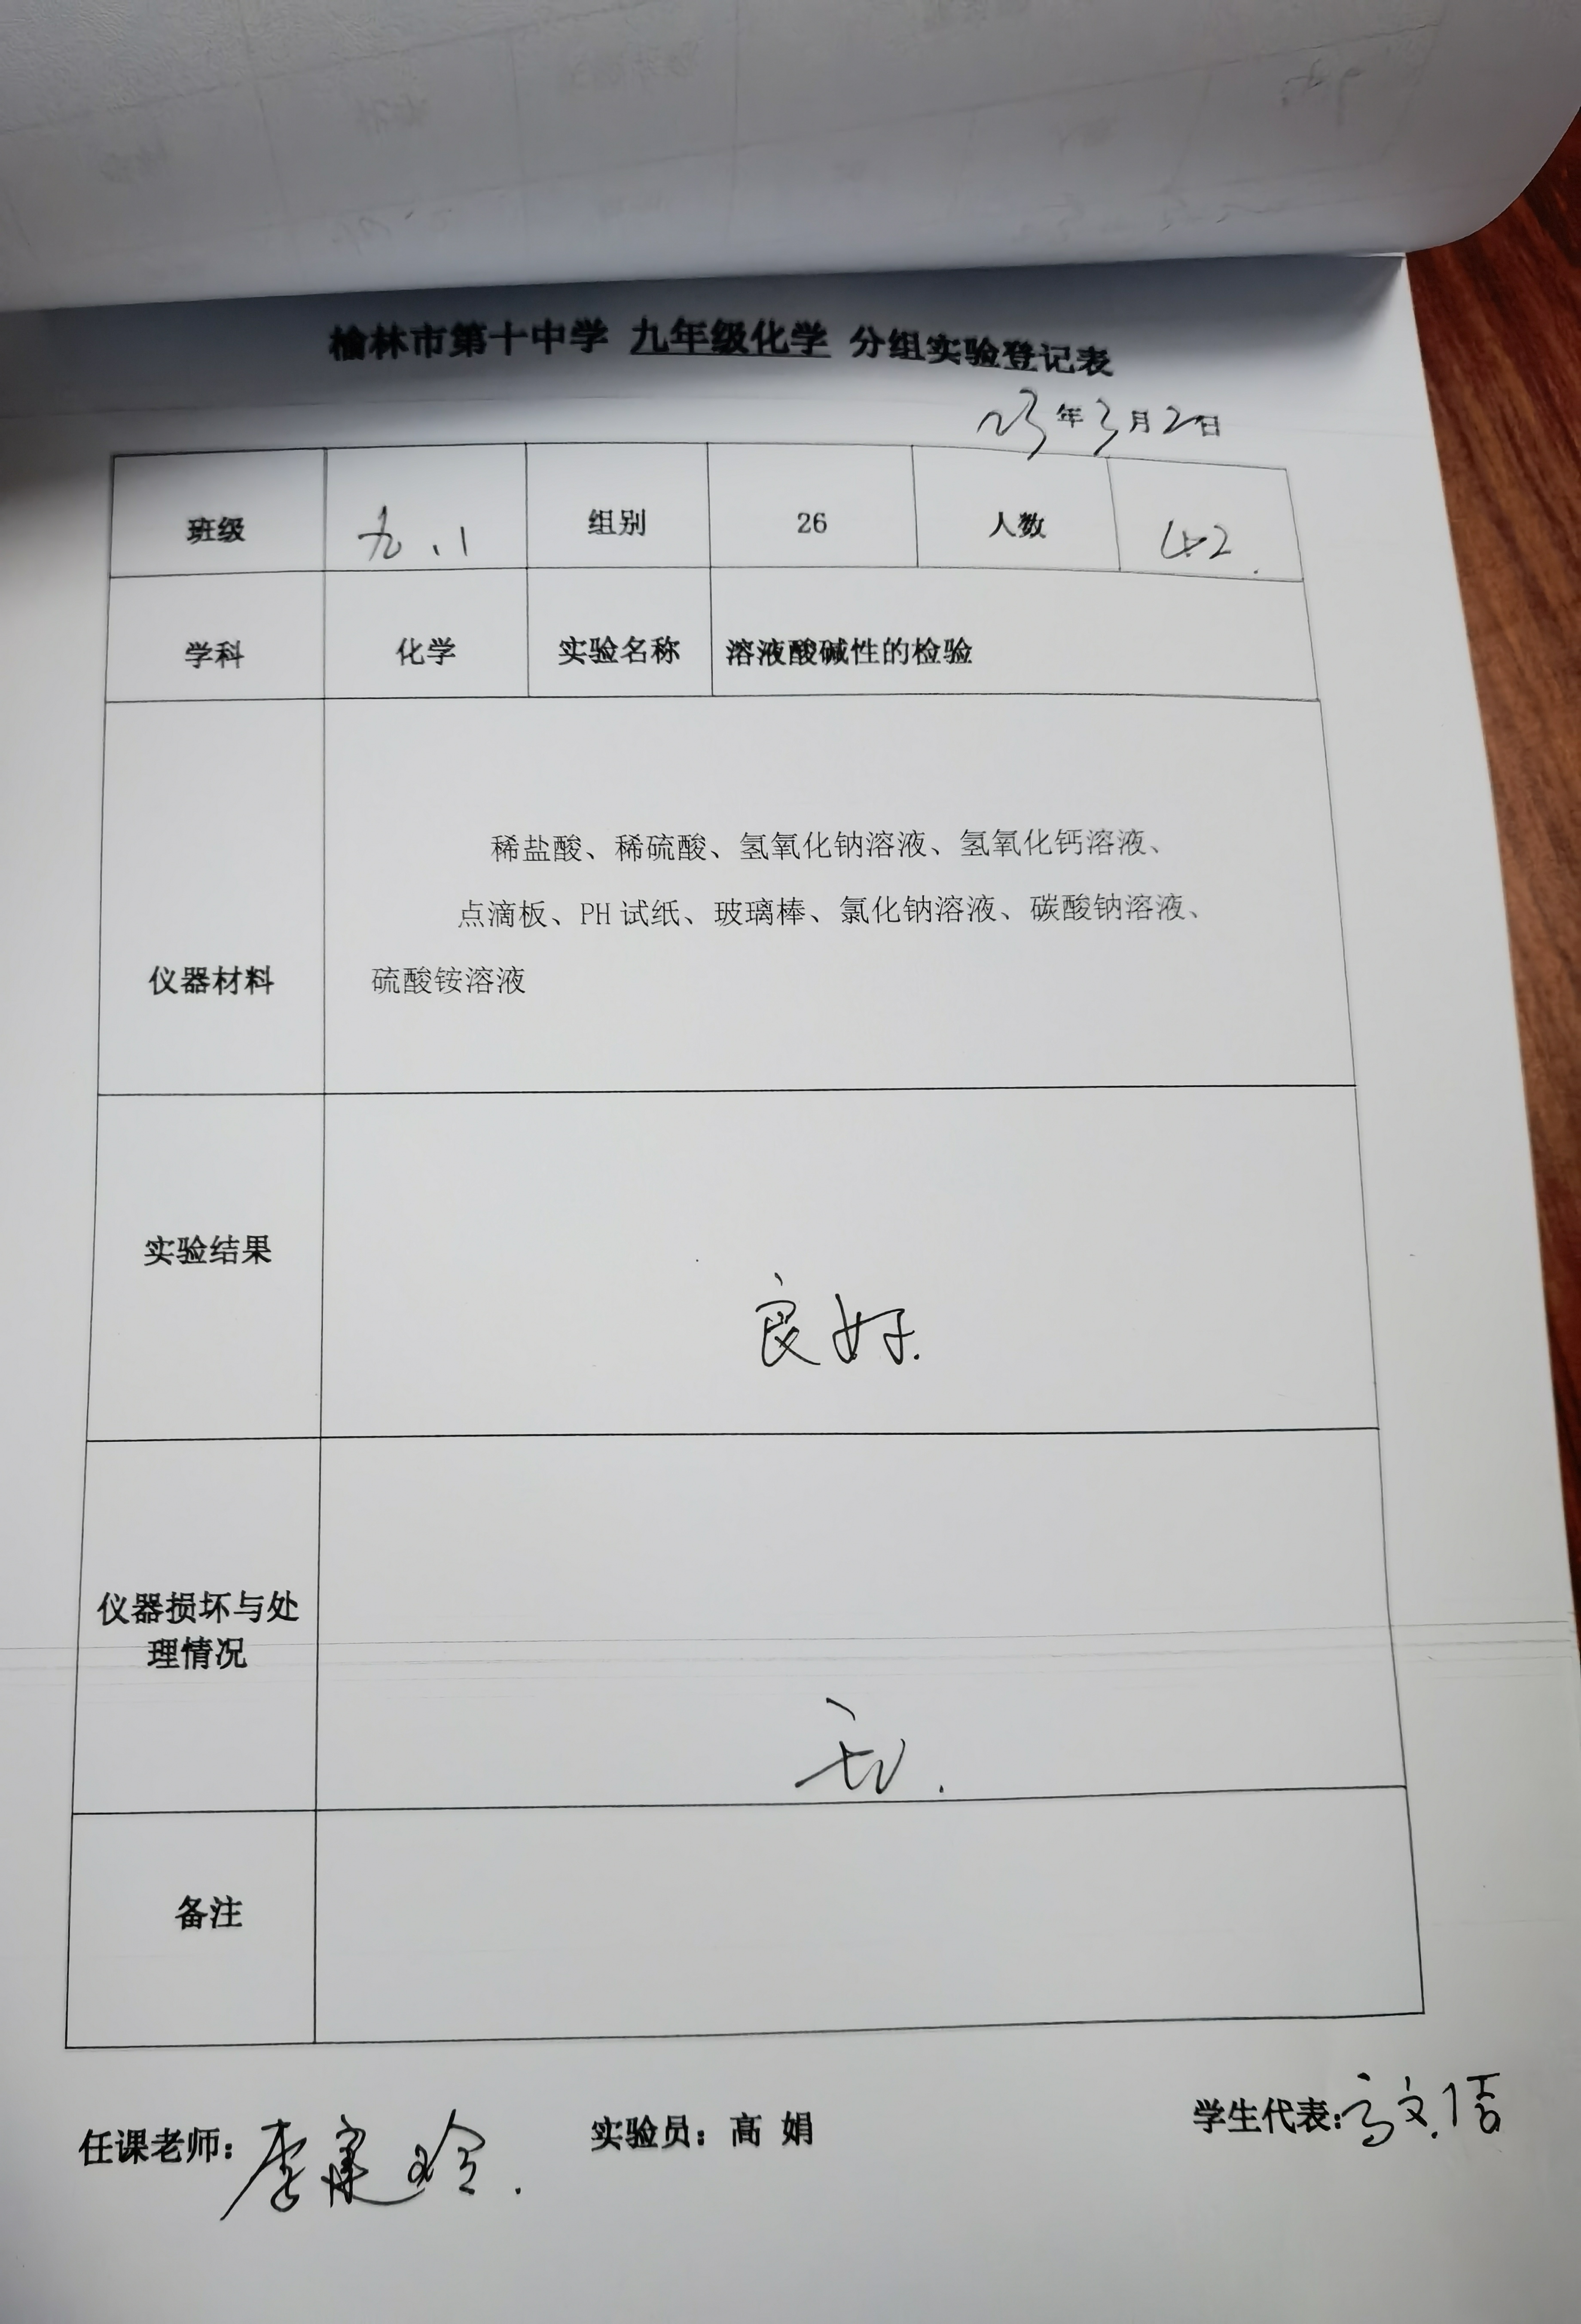 榆林市第十中学 九年级化学 分组实验登记表
23年3月2日
班级 九.1 组别 26 人数 42.
学科 化学 实验名称 溶液酸碱性的检验
稀盐酸、稀硫酸、氢氧化钠溶液、氢氧化钙溶液、
点滴板、PH试纸、玻璃棒、氯化钠溶液、碳酸钠溶液、
仪器材料 硫酸铵溶液
实验结果
良好.
仪器损坏与处
理情况
无.
备注
任课老师: 李 实验员: 高 娟 学生代表: 高文